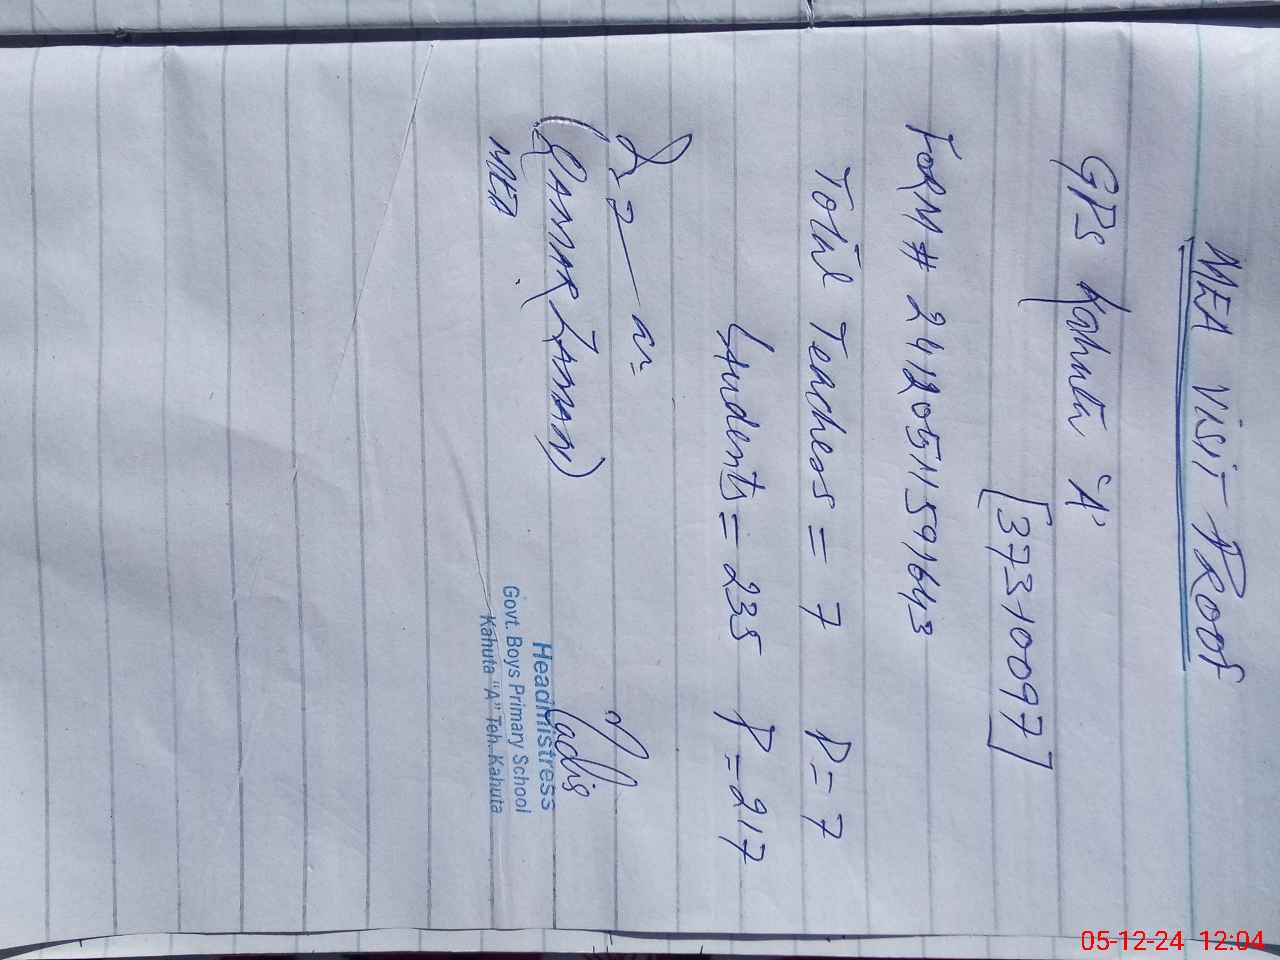 MEA Visit PRoof
GPS Kahuta 'A'
[37310097]
FORM # 24120511591643
Total Teaches = 7 P = 7
Students = 235 P = 217
(QAMAR ZAMAN)
MEA
Headmistress
Govt. Boys Primary School
Kahuta "A" Teh. Kahuta
05-12-24 12:04